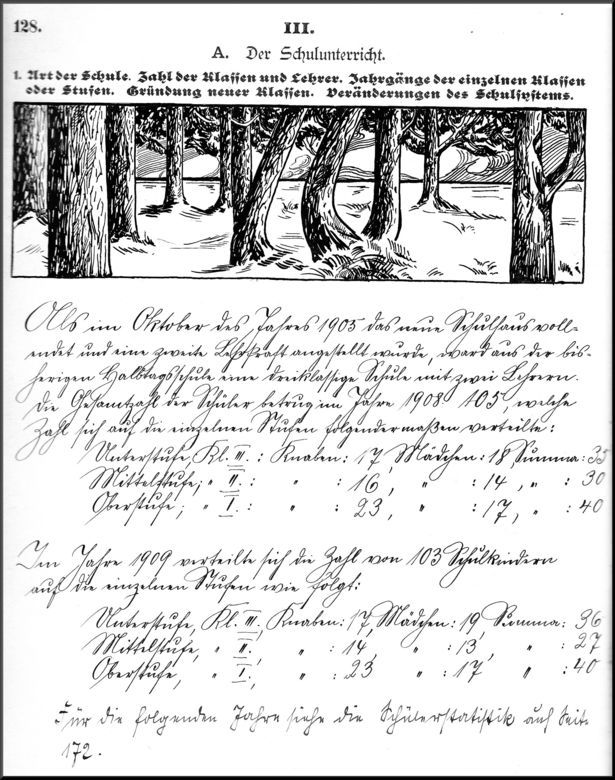 128.
III.
A. Der Schulunterricht.
1. Art der Schule. Zahl der Klassen und Lehrer. Jahrgänge der einzelnen Klassen
oder Stufen. Gründung neuer Klassen. Veränderungen des Schulsystems.
Als im Oktober des Jahres 1905 das neue Schulhaus voll-
endet und eine zweite Lehrkraft angestellt wurde, ward aus der bis-
herigen Halbtagsschule eine dreiklassige Schule mit zwei Lehrern.
Die Gesamtzahl der Schüler betrug im Jahre 1908: 105, welche
Zahl sich auf die einzelnen Stufen folgendermaßen verteilte:
Unterstufe, Kl. III.: Knaben: 17, Mädchen: 18, Summa: 35
Mittelstufe; " II.: " : 16, " : 14, " : 30
Oberstufe; " I.: " : 23, " : 17, " : 40
Im Jahre 1909 verteilte sich die Zahl von 103 Schulkindern
auf die einzelnen Stufen wie folgt:
Unterstufe, Kl. III., Knaben: 17, Mädchen: 19 Summa: 36
Mittelstufe, " II., " : 14, " : 13, " : 27
Oberstufe, " I., " : 23 " : 17 " : 40
Für die folgenden Jahre siehe die Schülerstatistik auf Seite
172.